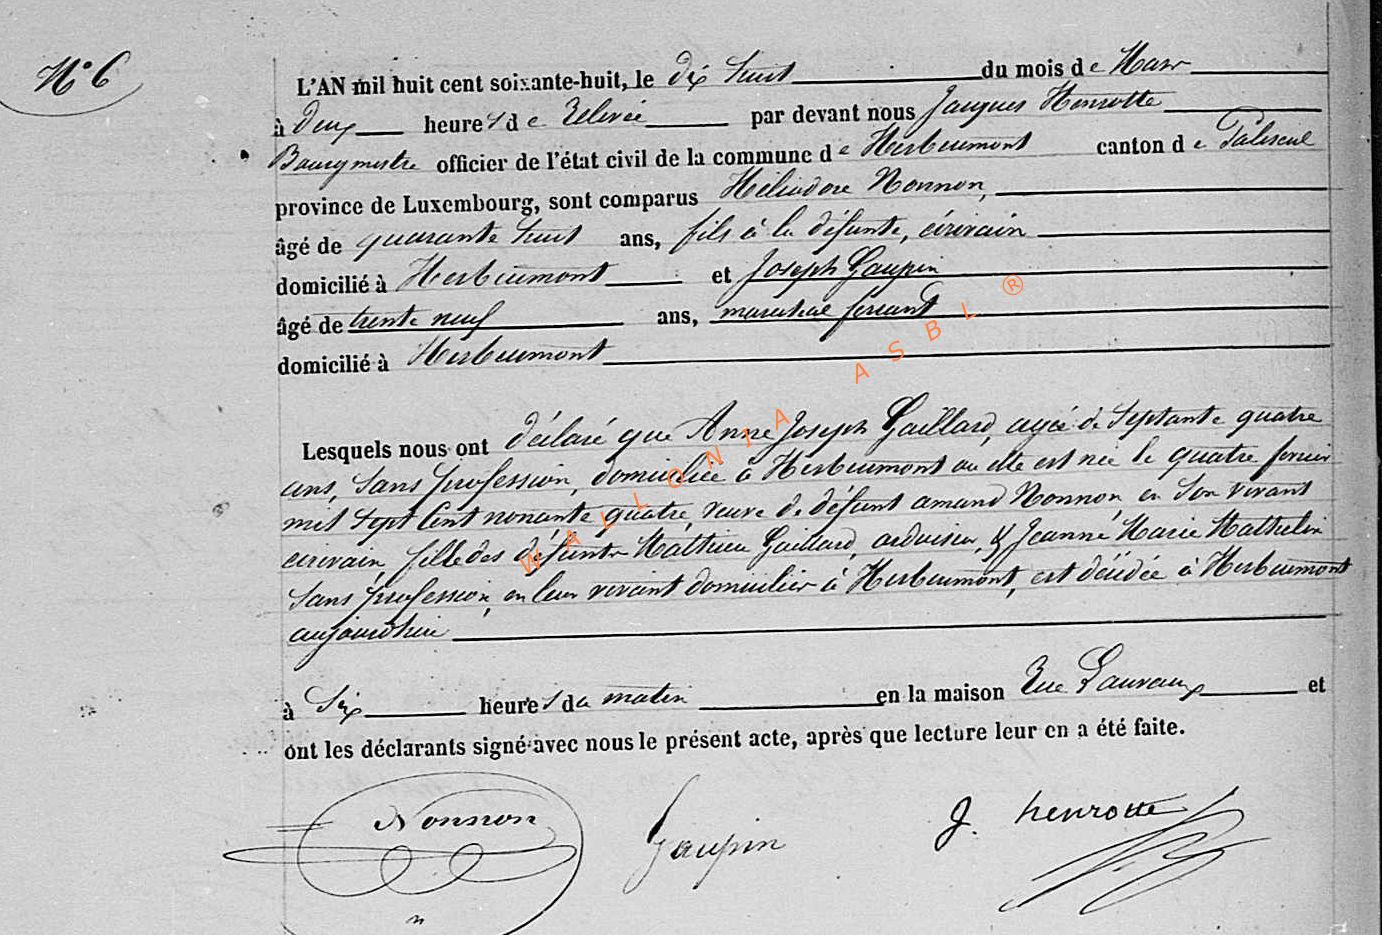 N° 6
L'AN mil huit cent soixante-huit, le dix huit du mois de Mars
à deux heures de relevée par devant nous Jacques Henrotte
Bourgmestre officier de l'état civil de la commune de Herbeumont canton de Paliseul
province de Luxembourg, sont comparus Héliodore Nonnon,
âgé de quarante huit ans, fils à la défunte, écrivain
domicilié à Herbeumont et Joseph Gaupin
âgé de trente neuf ans, maréchal ferrant
domicilié à Herbeumont
Lesquels nous ont déclaré que Anne Joseph Gaillard, agée de septante quatre
ans, sans profession, domiciliée à Herbeumont ou elle est née le quatre fevrier
mil sept cent nonante quatre, veuve de défunt amand Nonnon, en son vivant
écrivain, fille des défunts Mathieu Gaillard, ardoisier, & Jeanne Marie Mathelin
sans profession, en leur vivant domiciliés à Herbeumont, est décédée à Herbeumont
aujourd'hui
à six heures du matin en la maison Rue Lauvaux et
ont les déclarants signé avec nous le présent acte, après que lecture leur en a été faite.
Nonnon Gaupin J. henrotte
n
WALLONIA ASBL ®